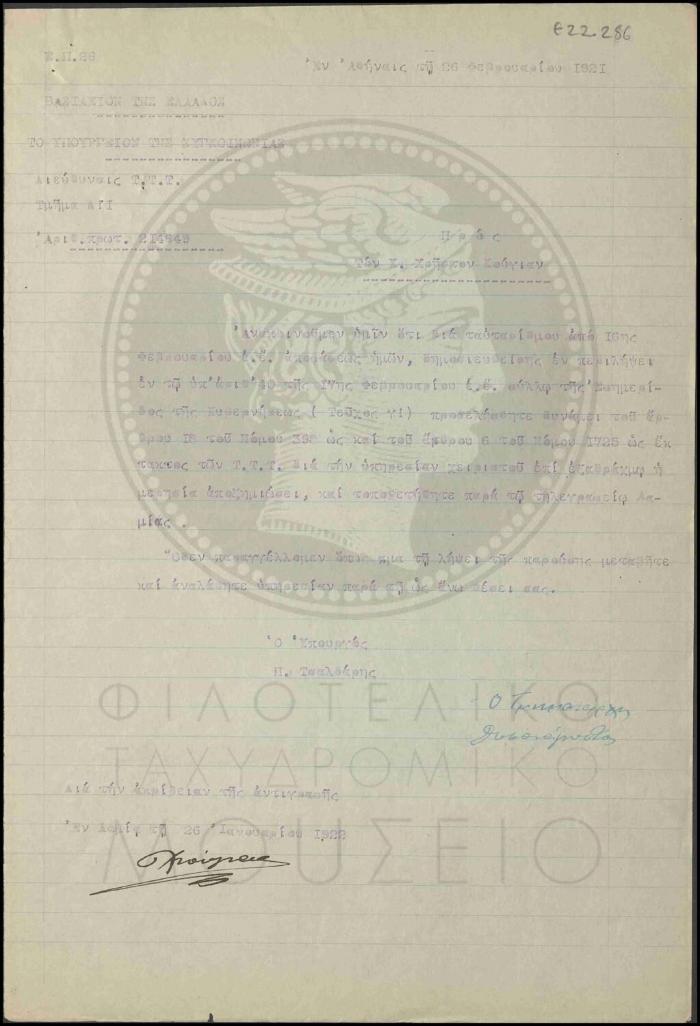 E22.286
Ε.Π.26
Ἐν Ἀθήναις τῇ 26 Φεβρουαρίου 1921
ΒΑΣΙΛΕΙΟΝ ΤΗΣ ΕΛΛΑΔΟΣ
ΤΟ ΥΠΟΥΡΓΕΙΟΝ ΤΗΣ ΣΥΓΚΟΙΝΩΝΙΑΣ
Διεύθυνσις Τ.Τ.Τ.
Τμῆμα
Ἀριθ.πρωτ. 214949
Πρός
Τόν Κ.
Ἀνακοινοῦμεν ὑμῖν ὅτι διά ταὐταρίθμου ἀπό 16ης
Φεβρουαρίου ἐ.ἔ. ἀποφάσεως ἡμῶν, δημοσιευθείσης ἐν περιλήψει
ἐν τῷ ὑπ' ἀριθ. τῆς 17ης Φεβρουαρίου ἐ.ἔ. φύλλῳ τῆς Ἐφημερί-
δος τῆς Κυβερνήσεως ( Τεῦχος γ') προσελήφθητε δυνάμει τοῦ ἄρ-
θρου 18 τοῦ Νόμου 398 ὡς καί τοῦ ἄρθρου 6 τοῦ Νόμου 1725 ὡς ἔκ
τακτος τῶν Τ.Τ.Τ. διά τήν ὑπηρεσίαν χειριστοῦ ἐπί ἑξαδράχμῳ ἡ
μερησίᾳ ἀποζημιώσει, καί τοποθετήθητε παρά τῷ τηλεγραφείῳ Λα-
μίας .
Ὅθεν παραγγέλλομεν ὅπως ἅμα τῇ λήψει τῆς παρούσης μεταβῆτε
καί ἀναλάβητε ὑπηρεσίαν παρά τῇ ὡς ἄνω θέσει σας.
Ὁ Ὑπουργός
Π. Τσαλδάρης
Διά τήν ἀκρίβειαν τῆς ἀντιγραφῆς
Ἐν Λαμίᾳ τῇ 26 Ἰανουαρίου 1922
ΦΙΛΟΤΕΛΙΚΟ
ΤΑΧΥΔΡΟΜΙΚΟ
ΜΟΥΣΕΙΟ